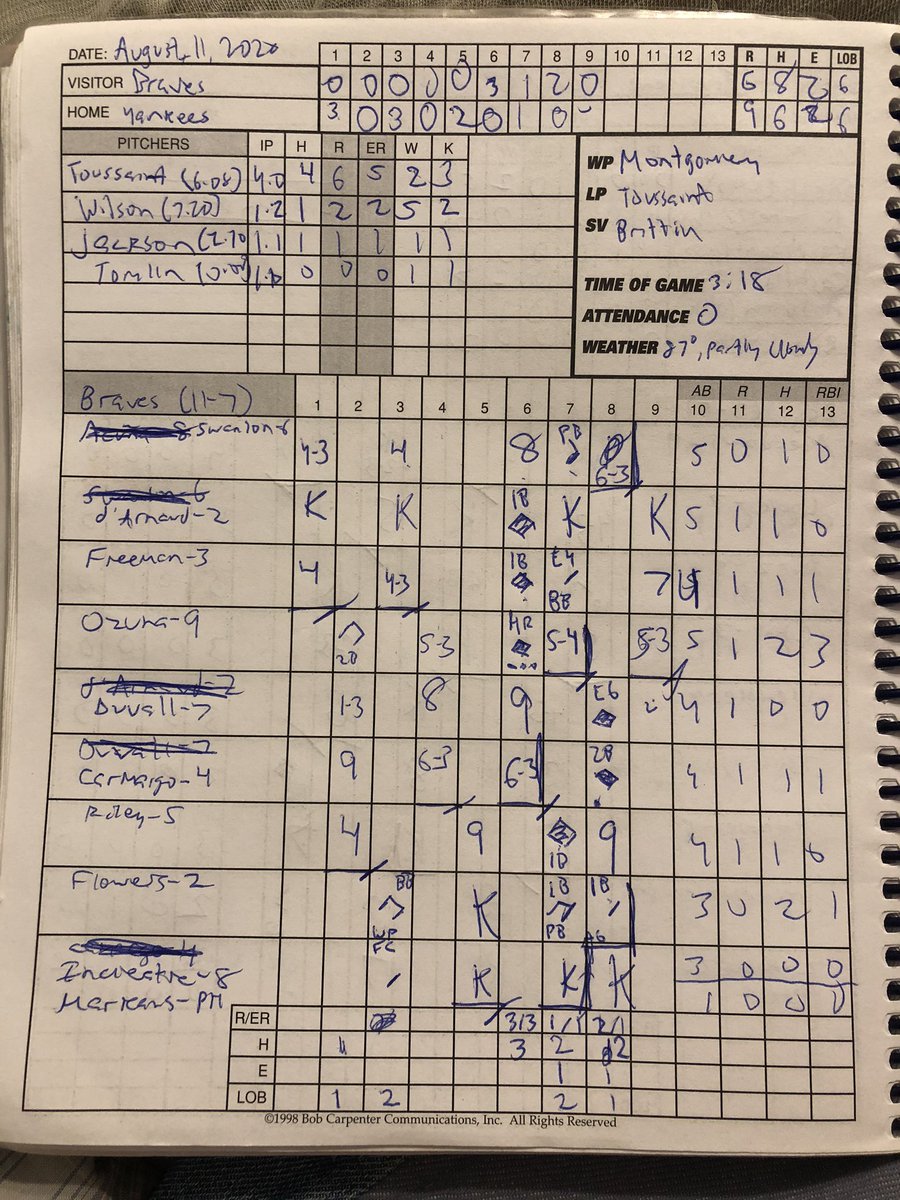 DATE: August 11, 2020 1 2 3 4 5 6 7 8 9 10 11 12 13 R H E LOB
VISITOR Braves 0 0 0 0 0 3 1 2 0 6 8 2 6
HOME Yankees 3 0 3 0 2 0 1 0 - 9 6 2 6
PITCHERS IP H R ER W K
Toussaint (6.08) 4.0 4 6 5 2 3
Wilson (7.20) 1.2 1 2 2 5 2
Jackson 1.1 1 1 1 1 1
Tomlin 1.0 0 0 0 1 1
WP Montgomery
LP Toussaint
SV Brittin
TIME OF GAME 3:18
ATTENDANCE 0
WEATHER 87°, partly cloudy
Braves (11-7) 1 2 3 4 5 6 7 8 9 AB 10 R 11 H 12 RBI 13
Swanson-6 4-3 4 8 PB 6-3 5 0 1 0
d'Arnaud-2 K K 1B K K 5 1 1 0
Freeman-3 4 4-3 1B E4 BB 7 1 1 1
Ozuna-9 20 5-3 HR 5-4 5-3 5 1 2 3
d'Arnaud-2
Duvall-7 1-3 8 9 E6 4 1 0 0
Duvall-7
Camargo-4 9 6-3 6-3 2B 4 1 1 1
Riley-5 4 9 1B 9 4 1 1 0
Flowers-2 BB WP K 1B PB 1B 3 0 2 1
Inciarte-8 FC K K K 3 0 0 0
Markakis-PH 1 0 0 0
R/ER 3/3 1/1 2/1
H 3 2 2
E 1 1
LOB 1 2 2 1
©1998 Bob Carpenter Communications, Inc. All Rights Reserved